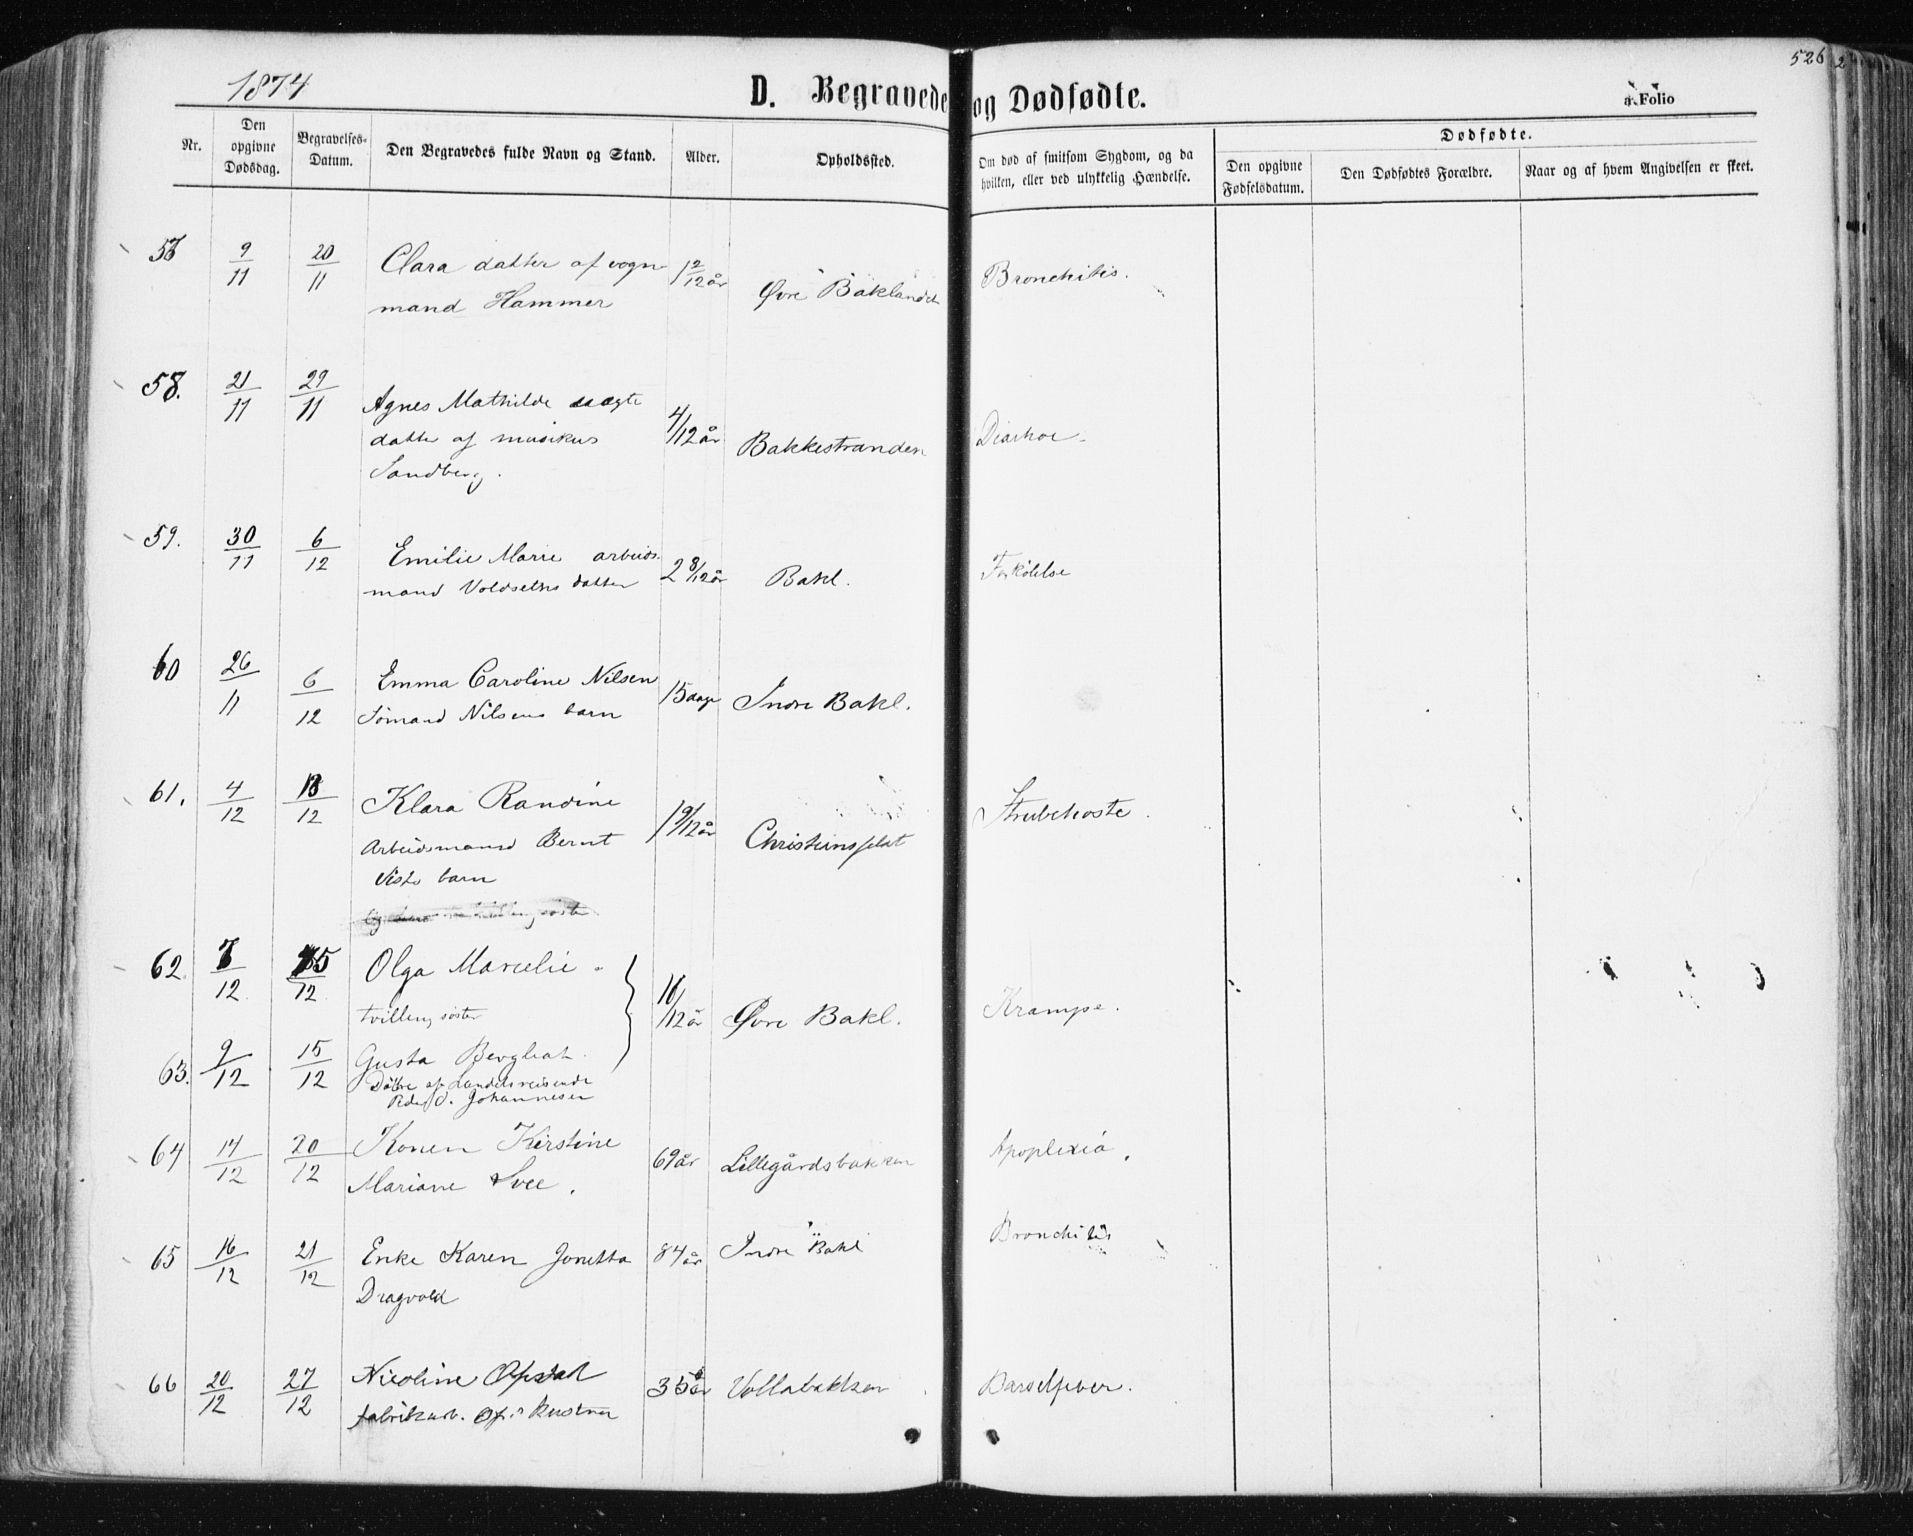 526
2
1874
D. Begravede og Dødfødte.
a. Folio
Nr.
Den opgivne Dødsdag.
Begravelses-Datum.
Den Begravedes fulde Navn og Stand.
Alder.
Opholdssted.
Om død af smitsom Sygdom, og da hvilken, eller ved ulykkelig Hændelse.
Dødfødte.
Den opgivne Fødselsdatum.
Den Dødfødtes Forældre.
Naar og af hvem Angivelsen er skeet.
57 9/11 20/11 Clara datter af vogn- 1 2/12 år Øvre Baklandet Bronchitis.
mand Hammer
58. 21/11 29/11 Agnes Mathilde uægte 4/12 år Bakkestranden Diarhoe.
datte af musikus
Sandberg.
59. 30/11 6/12 Emilie Marie arbeids- 2 8/12 år Bakl. Forkölelse
mand Voldseths datter
60 26/11 6/12 Emma Caroline Nilsen 15 dage Indre Bakl.
Sömand Nilsens barn
61. 4/12 13/12 Klara Randine 1 9/12 år Christiansfeldt Strubehoste.
Arbeidsmand Bernt
barn
62. 7/12 15/12 Olga Marcelie 16/12 år Øvre Bakl. Krampe.
tvillingsöster
63. 9/12 15/12 Gusta Bergliot
Döttre af Handelsreisende
Johannesen
64 14/12 20/12 Konen Kirstine 69 år Lillegårdsbakken Apoplexia.
Mariane Svee.
65 16/12 21/12 Enke Karen Jonetta 84 år Indre Bakl Bronchitis
Dragvold
66 20/12 27/12 Nicoline Opstad 35 år Vollabakken Barselfeber.
fabrikarb. Op.s kustru